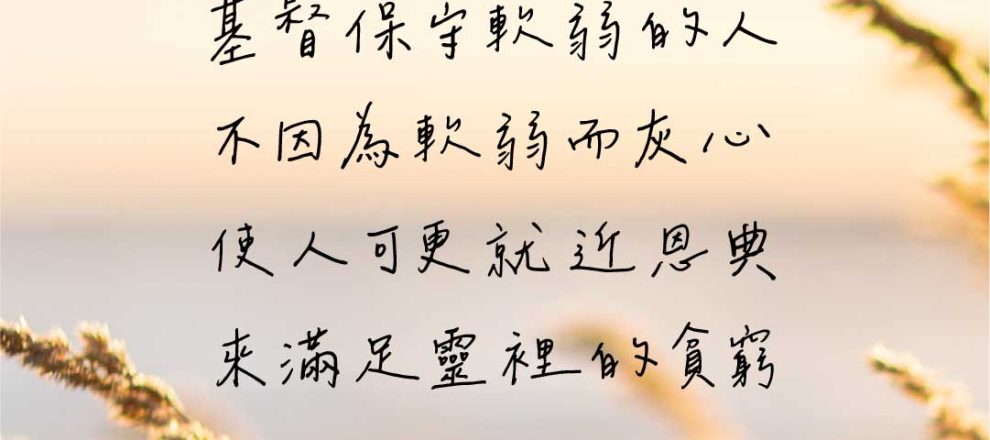 基督保守軟弱的人
不因為軟弱而灰心
使人可更就近恩典
來滿足靈裡的貧窮